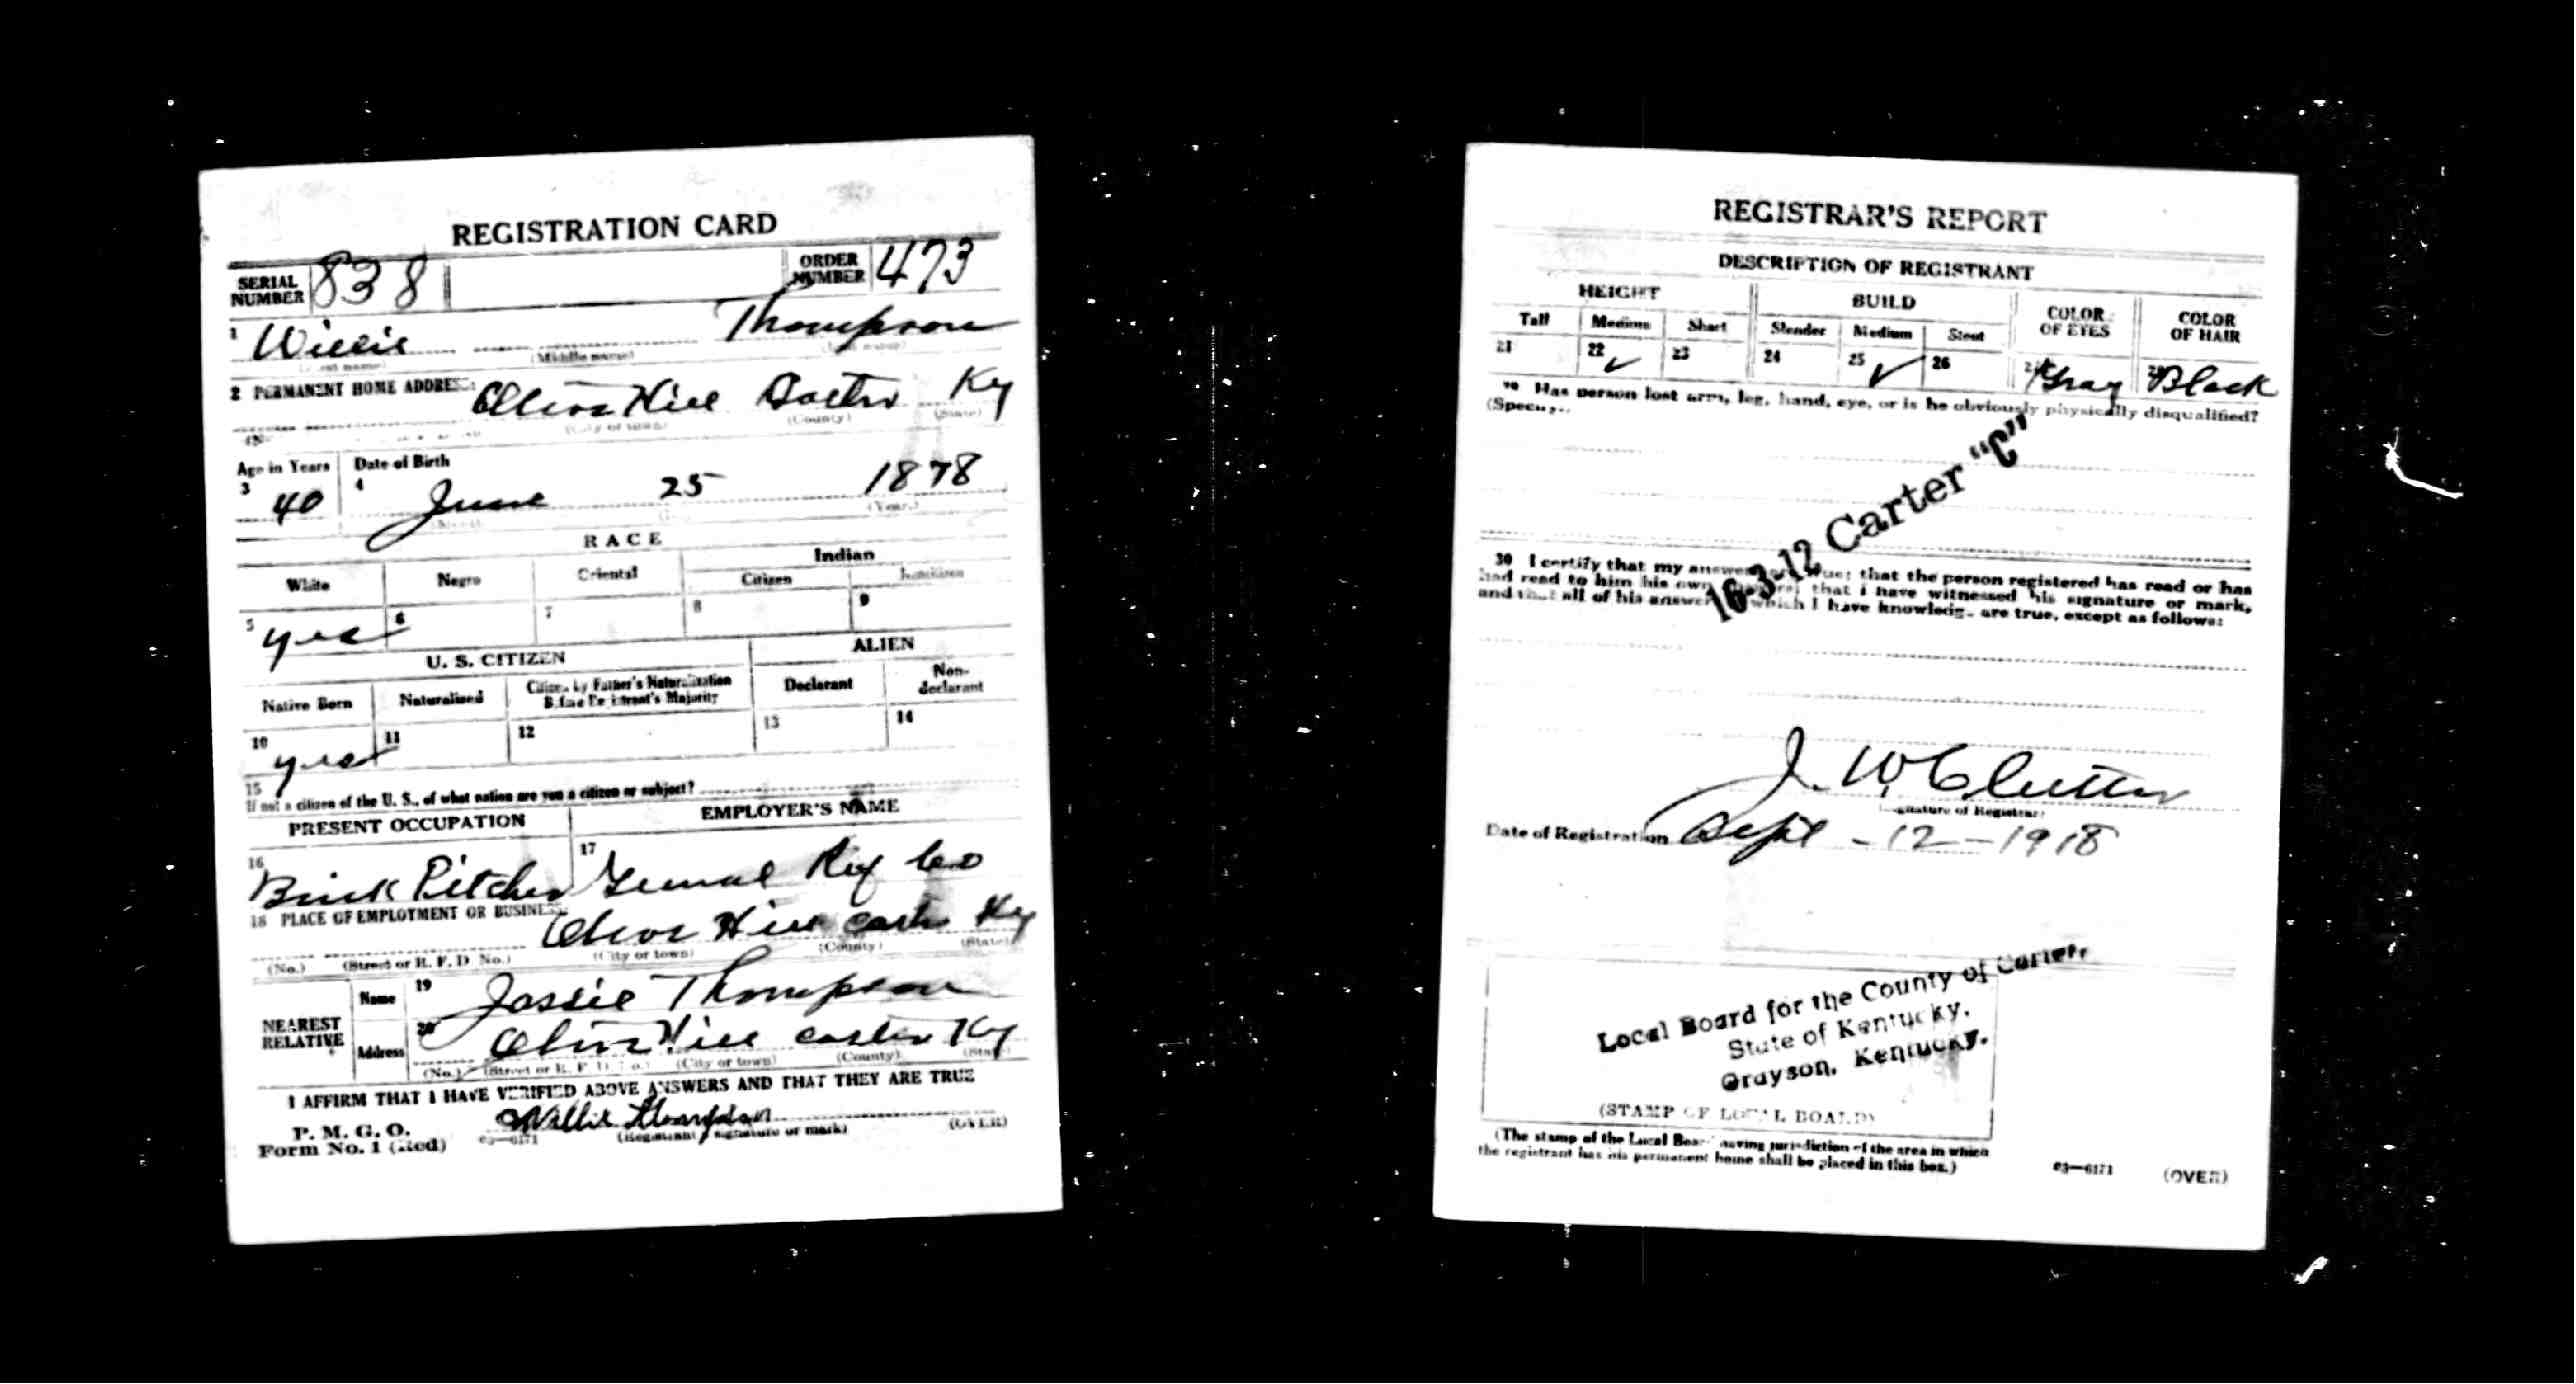 REGISTRATION CARD
SERIAL NUMBER 838 ORDER NUMBER 473
1 Willie Thompson
(Middle name)
2 PERMANENT HOME ADDRESS:
Olive Hill Carter Ky
(City or town) (County) (State)
Age in Years Date of Birth
3 40 4 June 25 1878
(Year)
RACE
White Negro Oriental Indian
Citizen
5 yes 6 7 8 9
U. S. CITIZEN ALIEN
Native Born Naturalized Citizen by Father's Naturalization Before Registrant's Majority Declarant Non-declarant
10 yes 11 12 13 14
15
If not a citizen of the U. S., of what nation are you a citizen or subject?
PRESENT OCCUPATION EMPLOYER'S NAME
16 Brick Pitcher 17 Ref Co
18 PLACE OF EMPLOYMENT OR BUSINESS:
Olive Hill Carter Ky
(No.) (Street or R. F. D. No.) (City or town) (County) (State)
NEAREST RELATIVE
Name 19 Jossie Thompson
Address 20 Olive Hill Carter Ky
(No.) (Street or R. F. D. No.) (City or town) (County) (State)
I AFFIRM THAT I HAVE VERIFIED ABOVE ANSWERS AND THAT THEY ARE TRUE
P. M. G. O.
Form No. 1 (Red) 03—6171 Willie Thompson
(Registrant's signature or mark) (OVER)
REGISTRAR'S REPORT
DESCRIPTION OF REGISTRANT
HEIGHT BUILD COLOR OF EYES COLOR OF HAIR
Tall Medium Short Slender Medium Stout
21 22 ✓ 23 24 25 ✓ 26 Gray Black
29 Has person lost arm, leg, hand, eye, or is he obviously physically disqualified?
(Specify.)
16-3-12 Carter "C"
30 I certify that my answers are true; that the person registered has read or has
had read to him his own answers; that I have witnessed his signature or mark,
and that all of his answers of which I have knowledge are true, except as follows:
J. W. Clutter
(Signature of Registrar)
Date of Registration Sept - 12 - 1918
Local Board for the County of Carter,
State of Kentucky,
Grayson, Kentucky.
(STAMP OF LOCAL BOARD)
(The stamp of the Local Board having jurisdiction of the area in which
the registrant has his permanent home shall be placed in this box.)
03—6171 (OVER)